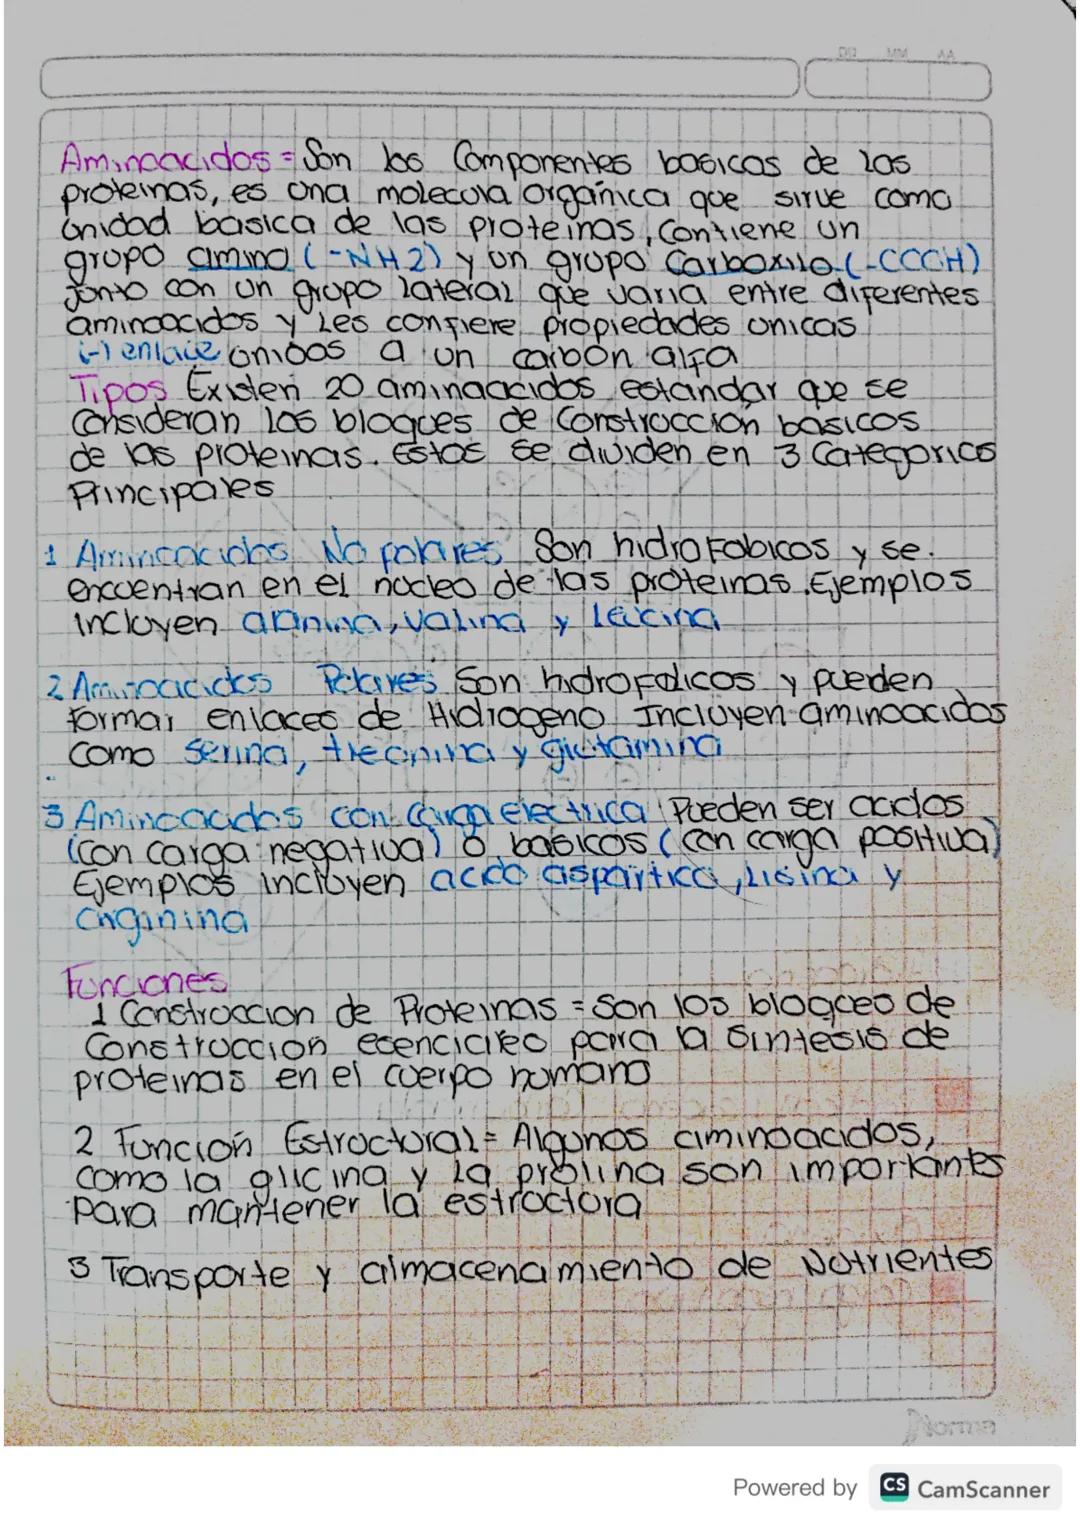 DD MM AA
Aminoacidos = Son los Componentes basicos de las
proteinas, es una molecula orgánica que sirve como
Unidad basica de las proteinas, Contiene un
grupo amino (-NH2) y un grupo Carboxilo (-COOH)
Junto con un grupo lateral que varia entre diferentes
aminoacidos y les confiere propiedades unicas
(-) enlace ambos a un carbón alfa
Tipos Existen 20 aminoacidos estandar que se
Consideran los bloques de Construcción basicos
de las proteinas. Estos se dividen en 3 Categorias
Principales
1 Aminoacidos No polares Son hidrofobicos y se
encuentran en el nucleo de las proteinas. Ejemplos
incluyen alanina, valina y leucina
2 Aminoacidos Polares Son hidrofolicos y pueden
formar enlaces de Hidrogeno Incluyen aminoacidos
Como serina, treonina y glutamina
3 Aminoacidos con carga electrica Pueden ser acidos
(con carga negativa) o basicos (con carga positiva)
Ejemplos incluyen acido aspartico, lisina y
arginina
Funciones
1 Construccion de Proteinas = Son los bloques de
Construccion esenciales para la Sintesis de
proteinas en el cuerpo humano
2 Función Estructural = Algunos aminoacidos,
como la glicina y la prolina son importantes
Para mantener la estructura
3 Transporte y almacenamiento de Nutrientes
Norma
Powered by CS CamScanner